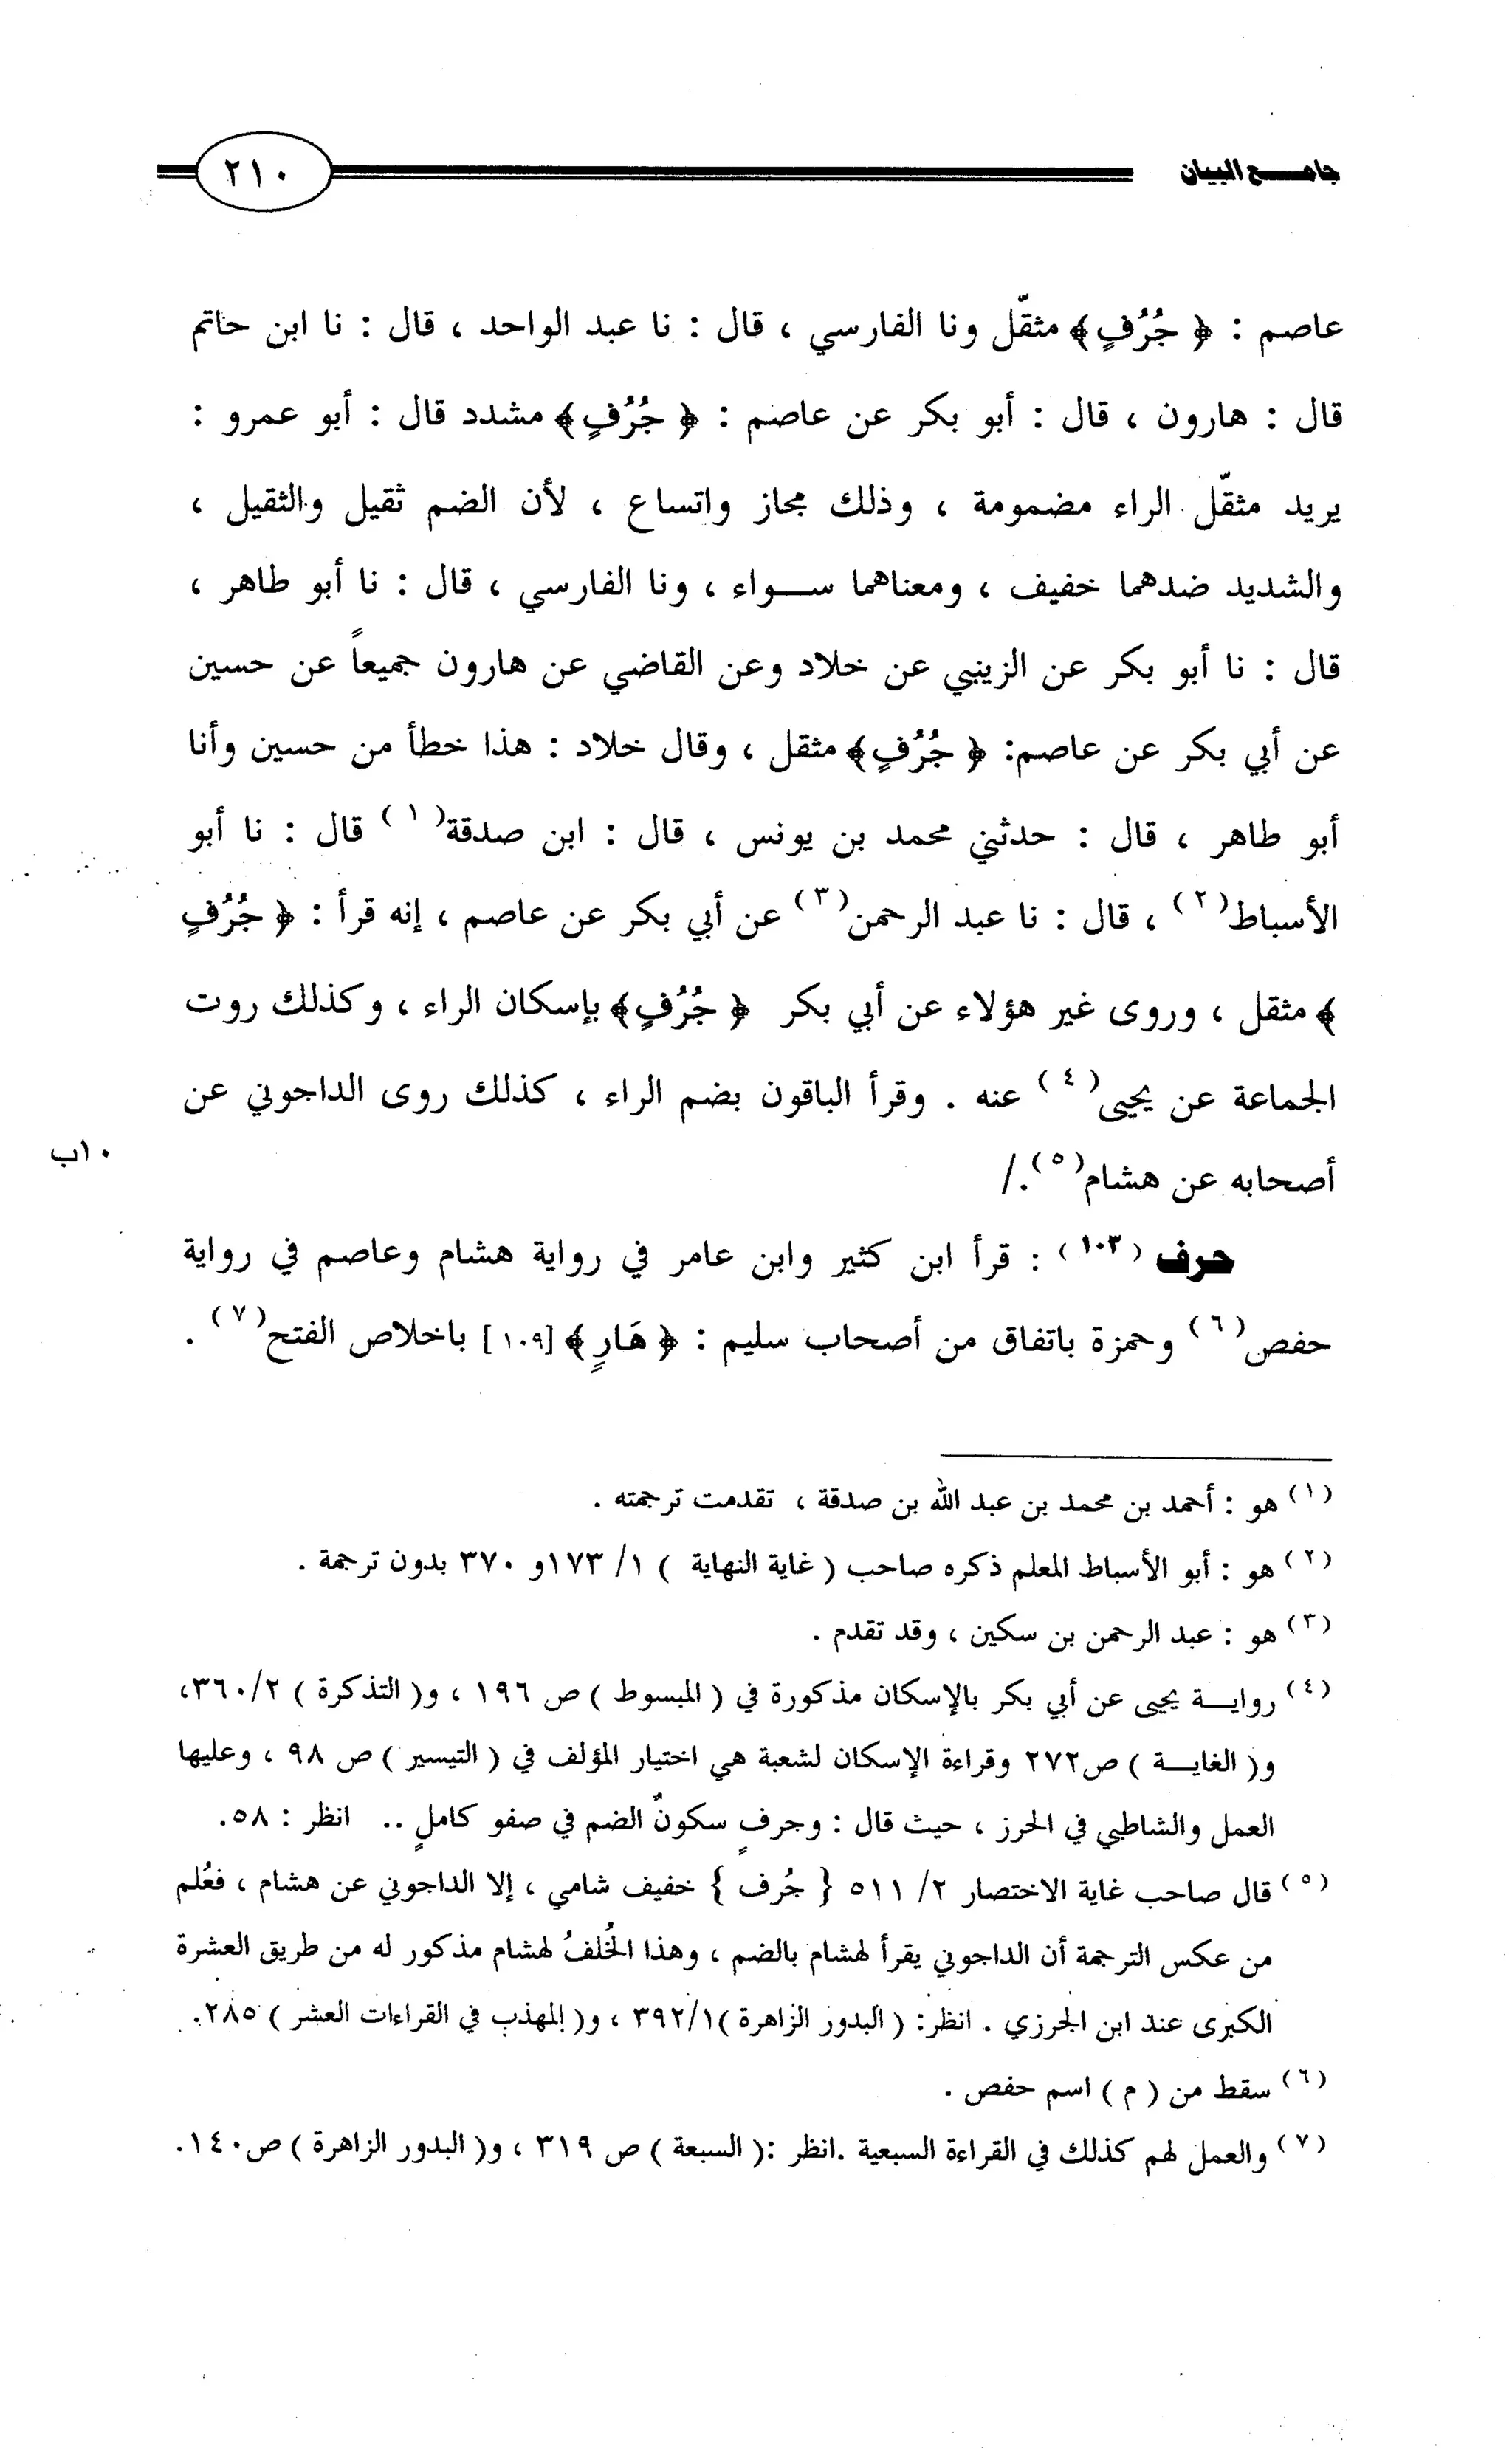 جامـــع البيان
٢١٠
عاصم : ﴿ جُرُفٍ ﴾ مثقّل ونا الفارسي ، قال : نا عبد الواحد ، قال : نا ابن حاتم
قال : هارون ، قال : أبو بكر عن عاصم : ﴿ جُرُفٍ ﴾ مشدد قال : أبو عمرو :
يريد مثقّل الراء مضمومة ، وذلك مجاز واتساع ، لأن الضم ثقيل والثقيل ،
والشديد ضدهما خفيف ، ومعناهما ســـواء ، ونا الفارسي ، قال : نا أبو طاهر ،
قال : نا أبو بكر عن الزينبي عن خلاد وعن القاضي عن هارون جميعاً عن حسين
عن أبي بكر عن عاصم: ﴿ جُرُفٍ ﴾ مثقل ، وقال خلاد : هذا خطأ من حسين وأنا
أبو طاهر ، قال : حدثني محمد بن يونس ، قال : ابن صدقة(١) قال : نا أبو
الأسباط(٢) ، قال : نا عبد الرحمن(٣) عن أبي بكر عن عاصم ، إنه قرأ : ﴿ جُرُفٍ
﴾ مثقل ، وروى غير هؤلاء عن أبي بكر ﴿ جُرُفٍ ﴾ بإسكان الراء ، وكذلك روت
الجماعة عن يحيى(٤) عنه . وقرأ الباقون بضم الراء ، كذلك روى الداجوني عن
أصحابه عن هشام(٥)./
١٠ب
حرف (١٠٣) : قرأ ابن كثير وابن عامر في رواية هشام وعاصم في رواية
حفص(٦) وحمزة باتفاق من أصحاب سليم : ﴿ هَارٍ ﴾ [١٠٩] باخلاص الفتح(٧) .
(١) هو : أحمد بن محمد بن عبد الله بن صدقة ، تقدمت ترجمته .
(٢) هو : أبو الأسباط المعلم ذكره صاحب ( غاية النهاية ) ١/ ١٧٣و ٣٧٠ بدون ترجمة .
(٣) هو : عبد الرحمن بن سكين ، وقد تقدم .
(٤) روايـــة يحيى عن أبي بكر بالإسكان مذكورة في ( المبسوط ) ص ١٩٦ ، و( التذكرة ) ٣٦٠/٢،
و( الغايـــة ) ص٢٧٢ وقراءة الإسكان لشعبة هي اختيار المؤلف في ( التيسير ) ص ٩٨ ، وعليها
العمل والشاطبي في الحرز ، حيث قال : وجرفٍ سكونٌ الضم في صفو كاملٍ .. انظر : ٥٨.
(٥) قال صاحب غاية الاختصار ٢/ ٥١١ { جُرف } خفيف شامي ، إلا الداجوني عن هشام ، فعُلم
من عكس الترجمة أن الداجوني يقرأ لهشام بالضم ، وهذا الخُلفُ لهشام مذكور له من طريق العشرة
الكبرى عند ابن الجرزي . انظر: ( البدور الزاهرة )٣٩٢/١ ، و( المهذب في القراءات العشر ) ٢٨٥.
(٦) سقط من ( م ) اسم حفص .
(٧) والعمل لهم كذلك في القراءة السبعية .انظر :( السبعة ) ص ٣١٩ ، و( البدور الزاهرة ) ص١٤٠.